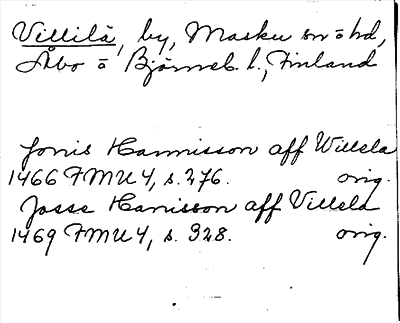 Villilä, by, Masku sn o hd,
Åbo o Björneb. l., Finland
Jonis Hannisson aff Willela
1466 FMU 4, s. 276. orig.
Josse Hanisson aff Villela
1469 FMU 4, s. 328. orig.